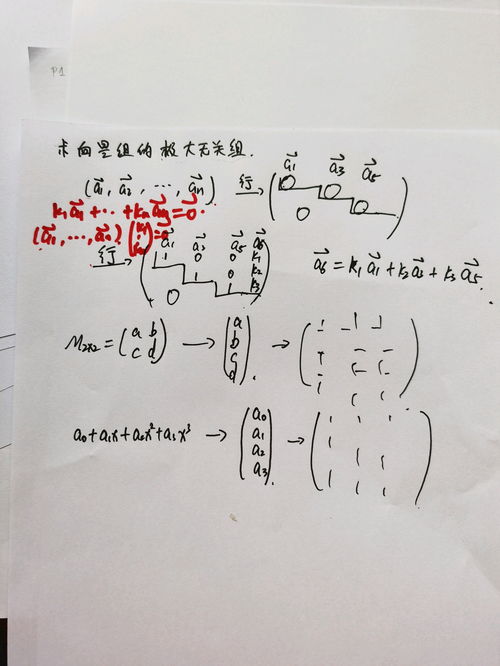 P1
求向量组的极大无关组.
(a⃗1, a⃗2, ..., a⃗n) 行→ ( a⃗1 a⃗3 a⃗5 0 )
k1a⃗1+...+kna⃗n=0⃗.
(a⃗1, ..., a⃗n) (k1 ⋮ kn)=0⃗
行→ ( a⃗1 a⃗3 a⃗5 a⃗6 1 0 0 k1 1 0 k2 1 k3 0 ) a⃗6 = k1a⃗1+k2a⃗3+k3a⃗5.
M2×2 = (a b c d) → (a b c d). → ( )
a0+a1x+a2x²+a3x³ → (a0 a1 a2 a3). → ( )